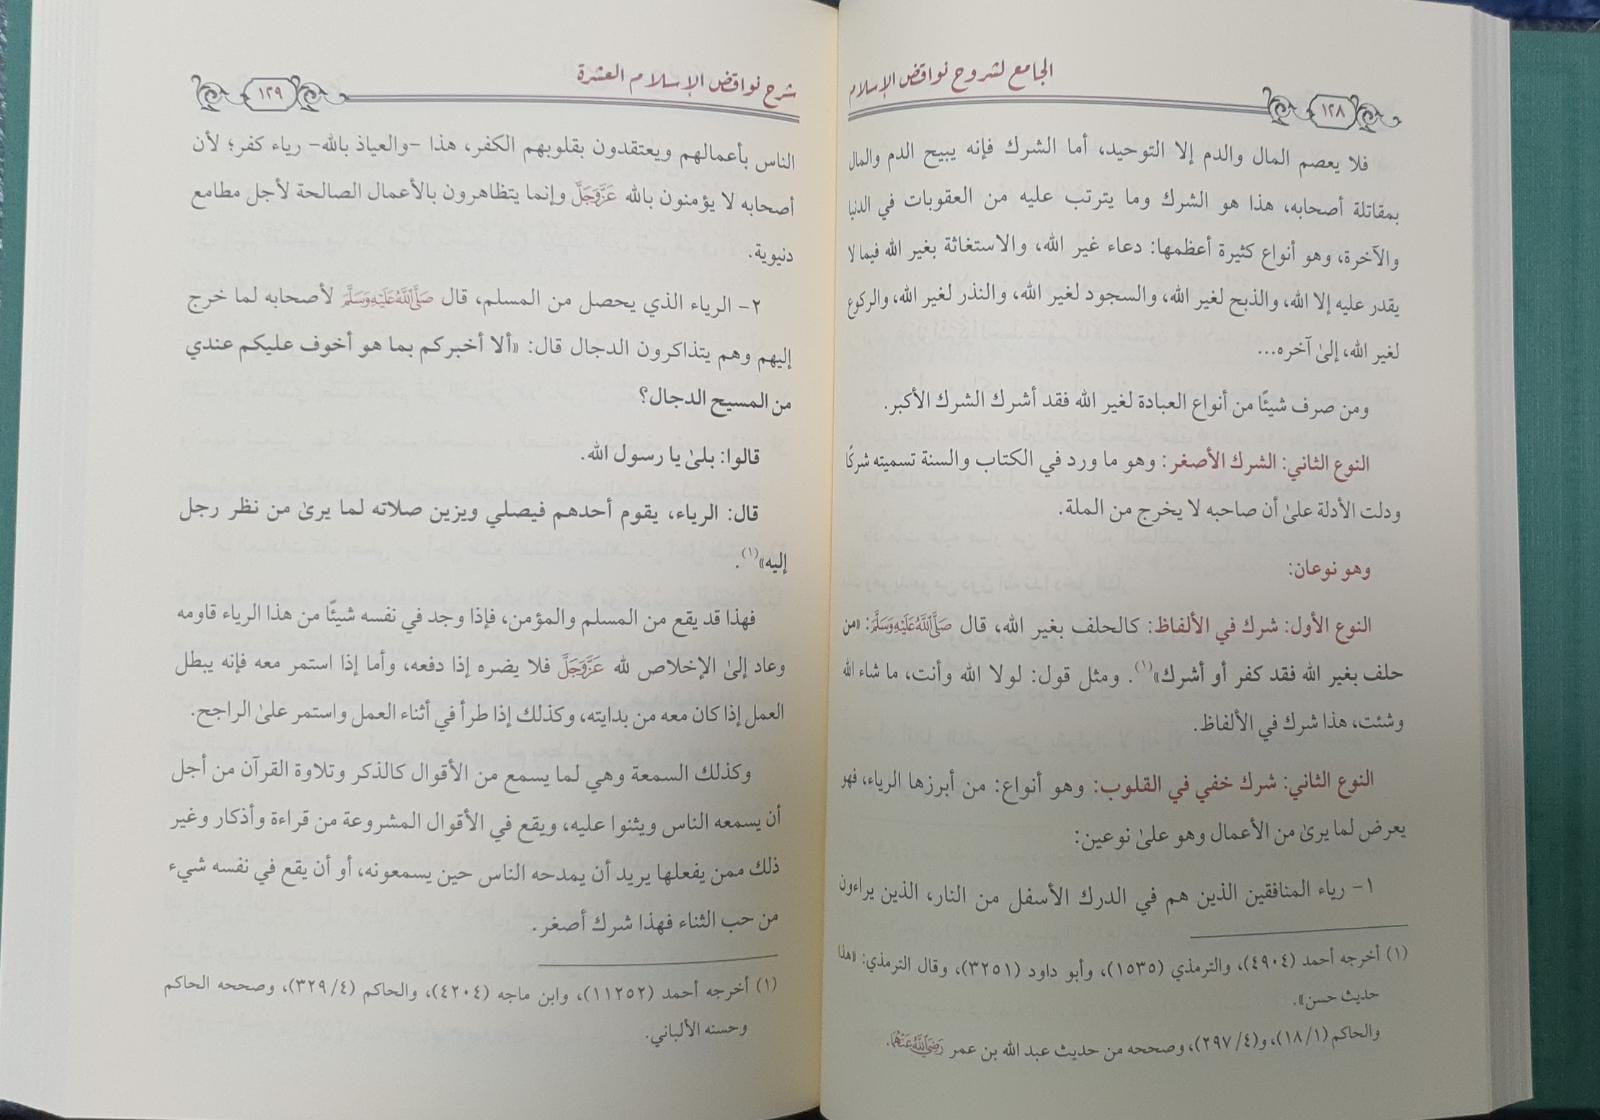 الجامع لشروح نواقض الإسلام
١٢٨
فلا يعصم المال والدم إلا التوحيد، أما الشرك فإنه يبيح الدم والمال
بمقاتلة أصحابه، هذا هو الشرك وما يترتب عليه من العقوبات في الدنيا
والآخرة، وهو أنواع كثيرة أعظمها: دعاء غير الله، والاستغاثة بغير الله فيما لا
يقدر عليه إلا الله، والذبح لغير الله، والسجود لغير الله، والنذر لغير الله، والركوع
لغير الله، إلىٰ آخره...
ومن صرف شيئًا من أنواع العبادة لغير الله فقد أشرك الشرك الأكبر.
النوع الثاني: الشرك الأصغر: وهو ما ورد في الكتاب والسنة تسميته شركًا
ودلت الأدلة علىٰ أن صاحبه لا يخرج من الملة.
وهو نوعان:
النوع الأول: شرك في الألفاظ: كالحلف بغير الله، قال صَلَّىٰ اللَّهُ عَلَيْهِ وَسَلَّمَ: «من
حلف بغير الله فقد كفر أو أشرك»(١). ومثل قول: لولا الله وأنت، ما شاء الله
وشئت، هذا شرك في الألفاظ.
النوع الثاني: شرك خفي في القلوب: وهو أنواع: من أبرزها الرياء، فهو
يعرض لما يرىٰ من الأعمال وهو علىٰ نوعين:
١- رياء المنافقين الذين هم في الدرك الأسفل من النار، الذين يراءون
(١) أخرجه أحمد (٤٩٠٤)، والترمذي (١٥٣٥)، وأبو داود (٣٢٥١)، وقال الترمذي: «هذا
حديث حسن».
والحاكم (١٨/١)، و(٢٩٧/٤)، وصححه من حديث عبد الله بن عمر رَضِيَ اللَّهُ عَنْهُمَا.
شرح نواقض الإسلام العشرة
١٢٩
الناس بأعمالهم ويعتقدون بقلوبهم الكفر، هذا -والعياذ بالله- رياء كفر؛ لأن
أصحابه لا يؤمنون بالله عَزَّ وَجَلَّ وإنما يتظاهرون بالأعمال الصالحة لأجل مطامع
دنيوية.
٢- الرياء الذي يحصل من المسلم، قال صَلَّىٰ اللَّهُ عَلَيْهِ وَسَلَّمَ لأصحابه لما خرج
إليهم وهم يتذاكرون الدجال قال: «ألا أخبركم بما هو أخوف عليكم عندي
من المسيح الدجال؟
قالوا: بلىٰ يا رسول الله.
قال: الرياء، يقوم أحدهم فيصلي ويزين صلاته لما يرىٰ من نظر رجل
إليه»(١).
فهذا قد يقع من المسلم والمؤمن، فإذا وجد في نفسه شيئًا من هذا الرياء قاومه
وعاد إلىٰ الإخلاص لله عَزَّ وَجَلَّ فلا يضره إذا دفعه، وأما إذا استمر معه فإنه يبطل
العمل إذا كان معه من بدايته، وكذلك إذا طرأ في أثناء العمل واستمر علىٰ الراجح.
وكذلك السمعة وهي لما يسمع من الأقوال كالذكر وتلاوة القرآن من أجل
أن يسمعه الناس ويثنوا عليه، ويقع في الأقوال المشروعة من قراءة وأذكار وغير
ذلك ممن يفعلها يريد أن يمدحه الناس حين يسمعونه، أو أن يقع في نفسه شيء
من حب الثناء فهذا شرك أصغر.
(١) أخرجه أحمد (١١٢٥٢)، وابن ماجه (٤٢٠٤)، والحاكم (٣٢٩/٤)، وصححه الحاكم
وحسنه الألباني.